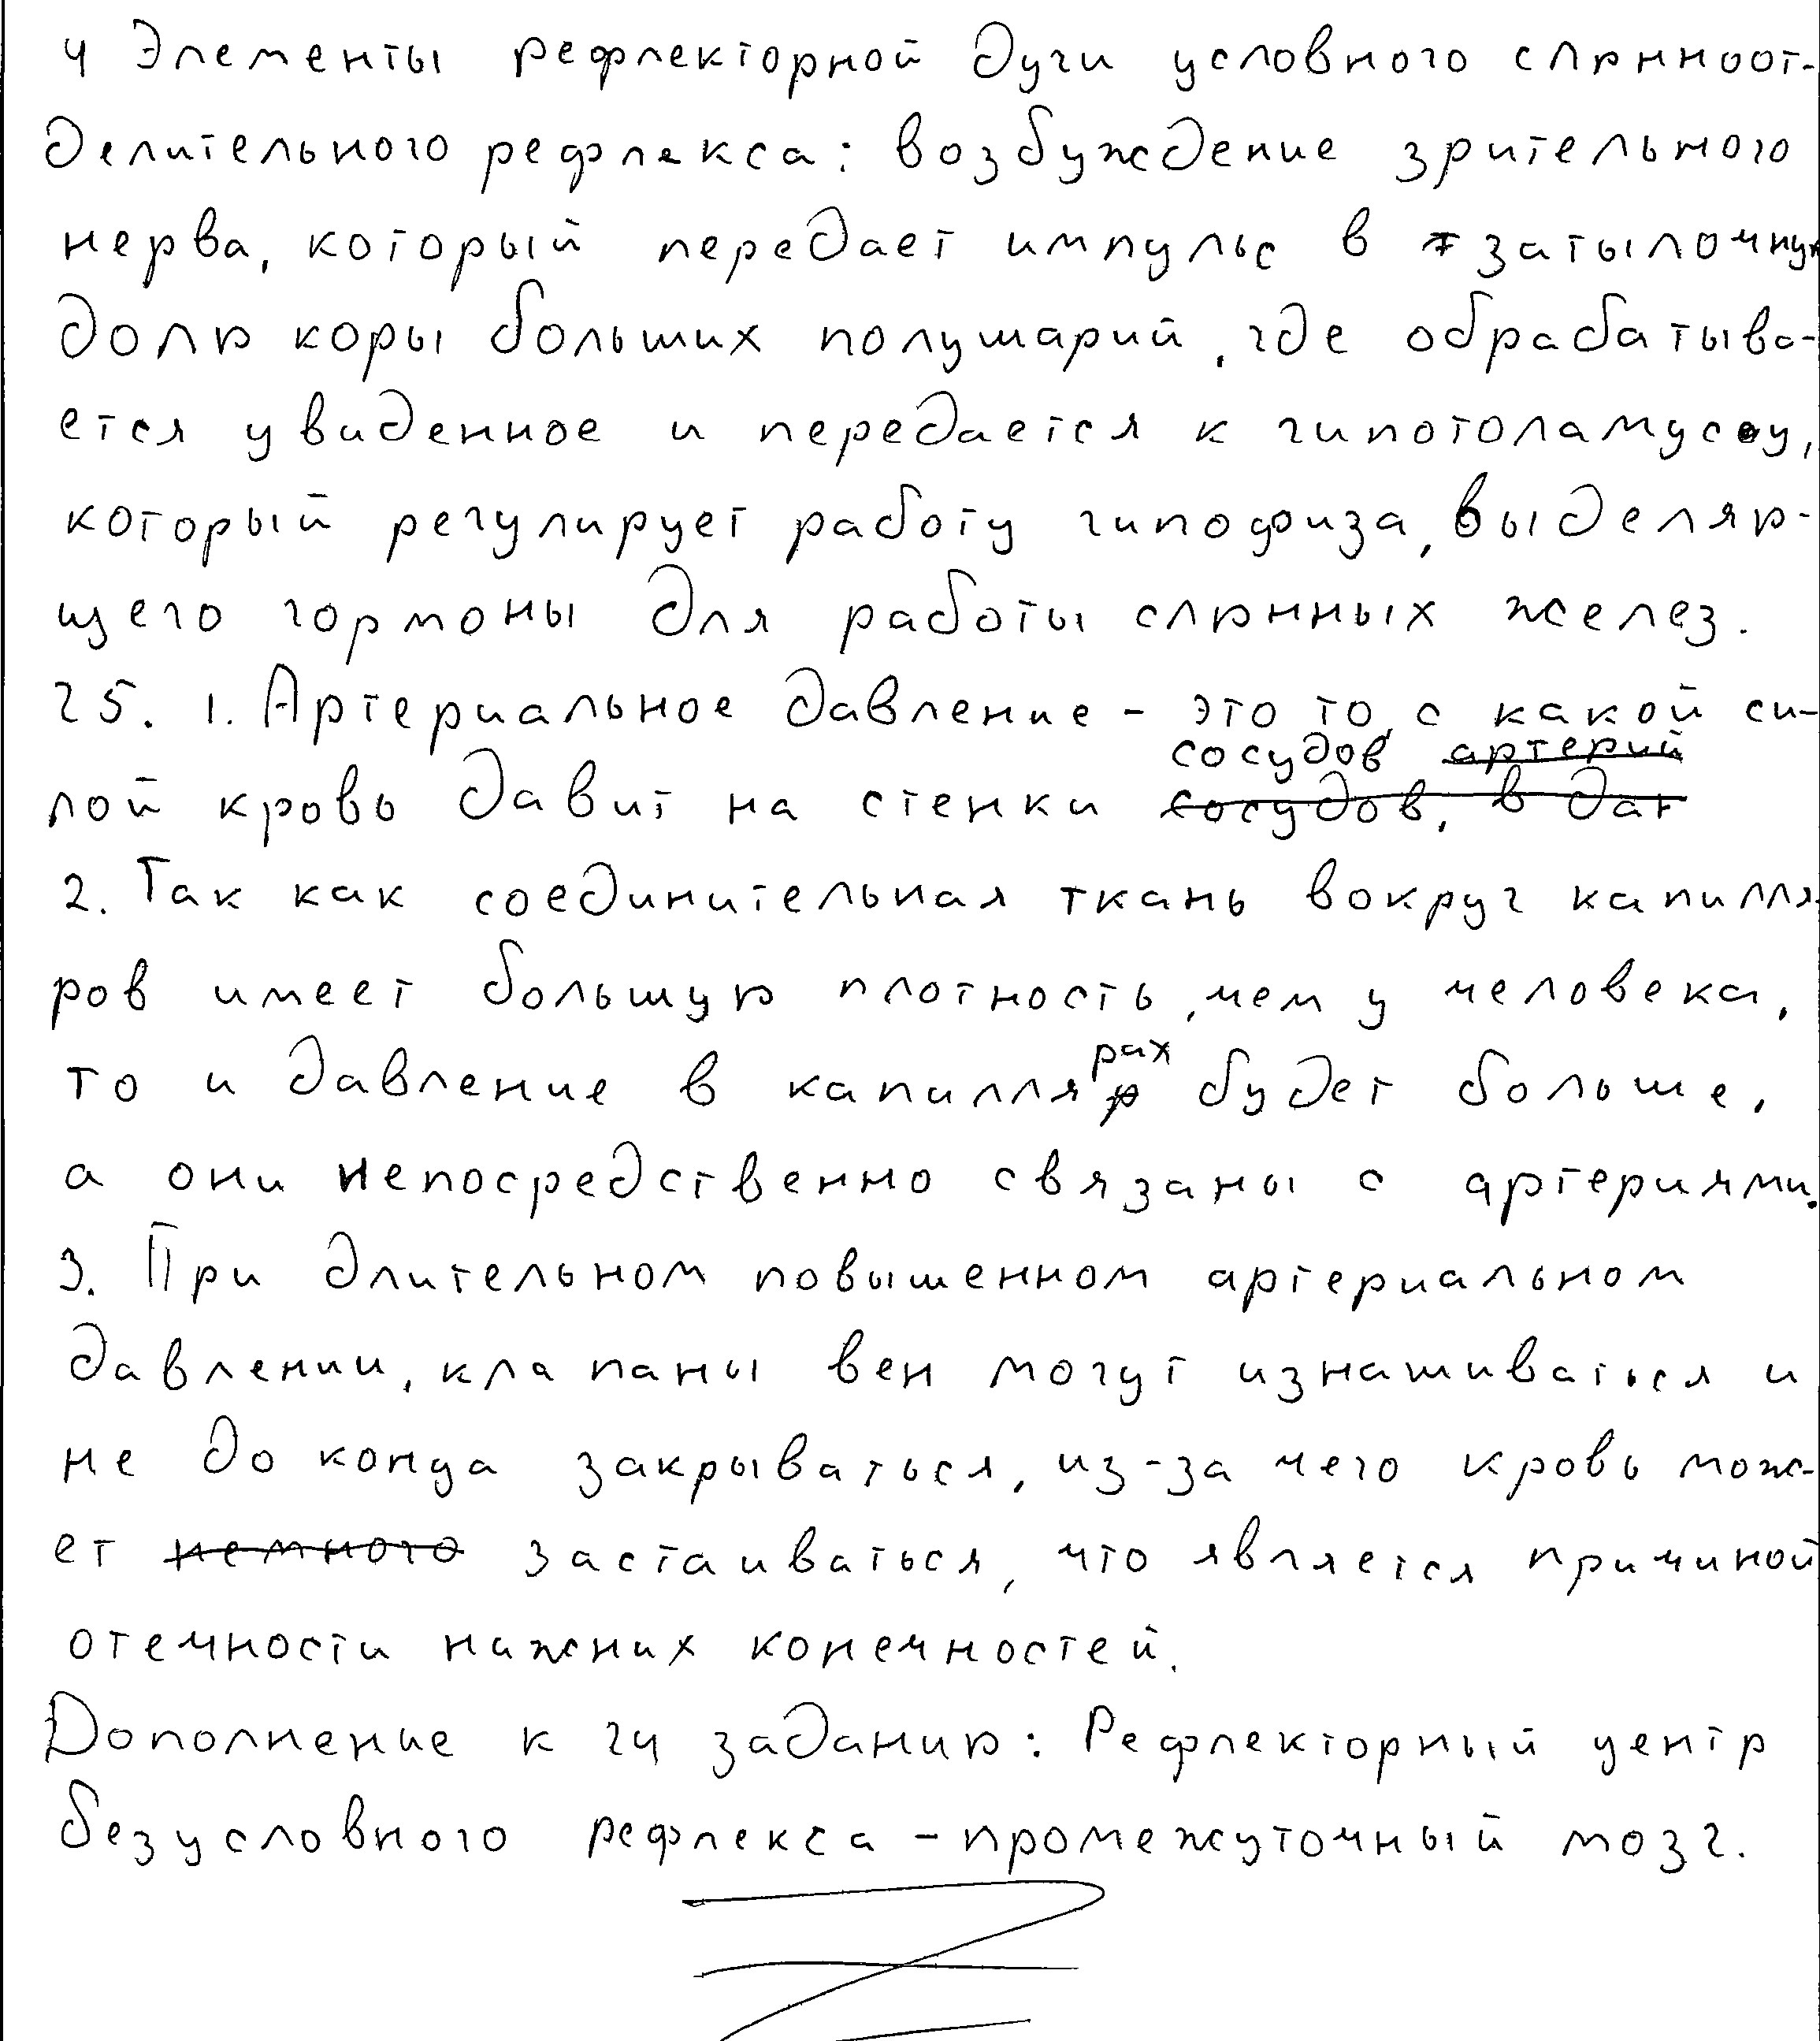 4 Элементы рефлекторной дуги условного слюнноот-
делительного рефлекса: возбуждение зрительного
нерва, который передает импульс в затылочную
долю коры больших полушарий, где обрабатыва-
ется увиденное и передается к гипотоламусу,
который регулирует работу гипофиза, выделяю-
щего гормоны для работы слюнных желез.
25. 1. Артериальное давление - это то, с какой си-
лой кровь давит на стенки сосудов ~~артерий~~
~~сосудов, в дат~~
2. Так как соединительная ткань вокруг капилля-
ров имеет большую плотность, чем у человека,
то и давление в капиллярах будет больше,
а они непосредственно связаны с артериями.
3. При длительном повышенном артериальном
давлении, клапаны вен могут изнашиваться и
не до конца закрываться, из-за чего кровь мож-
ет ~~немного~~ застаиваться, что является причиной
отечности нижних конечностей.
Дополнение к 24 заданию: Рефлекторный центр
безусловного рефлекса - промежуточный мозг.